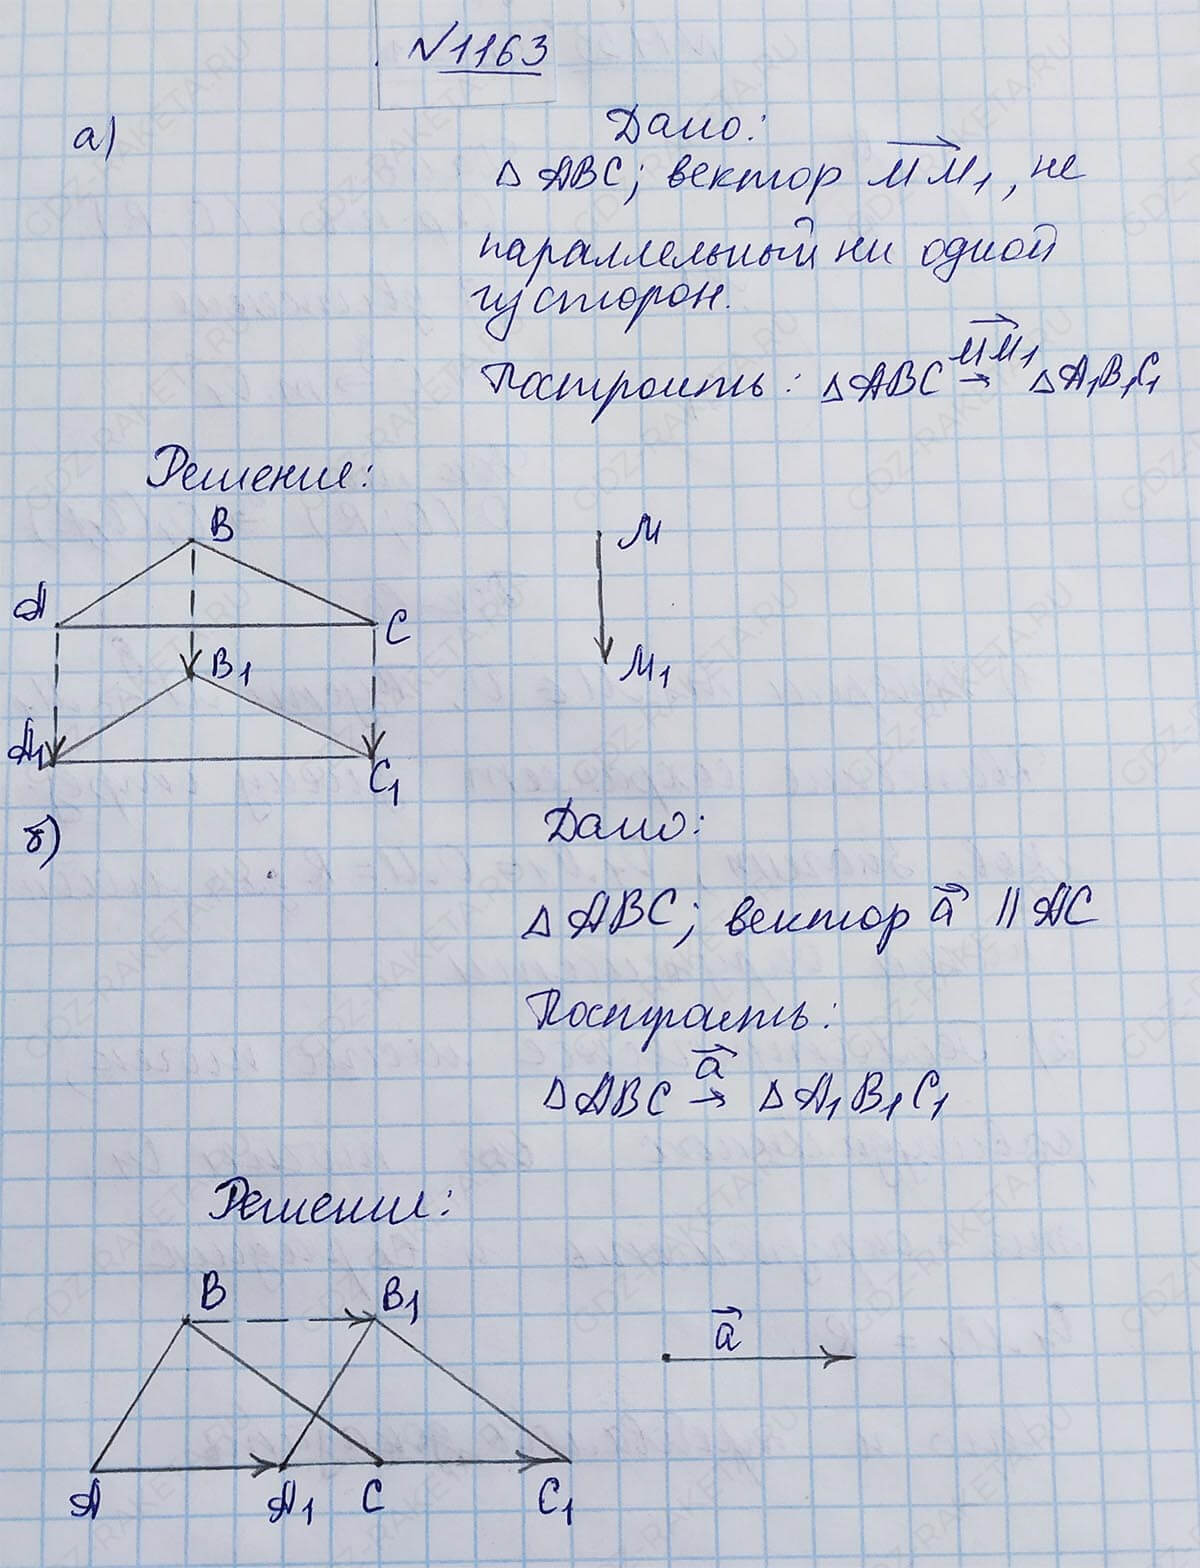 №1163
а)
Дано:
△ ABC; вектор MM₁, не
параллельный ни одной
из сторон.
Построить: △ABC → △A₁B₁C₁
MM₁
Решение:
B
M
A
C
B₁
M₁
A₁
C₁
б)
Дано:
△ ABC; вектор a || AC
Построить:
a
△ABC → △A₁B₁C₁
Решение:
B
B₁
a
A
A₁
C
C₁
GDZ-RAKETA.RU